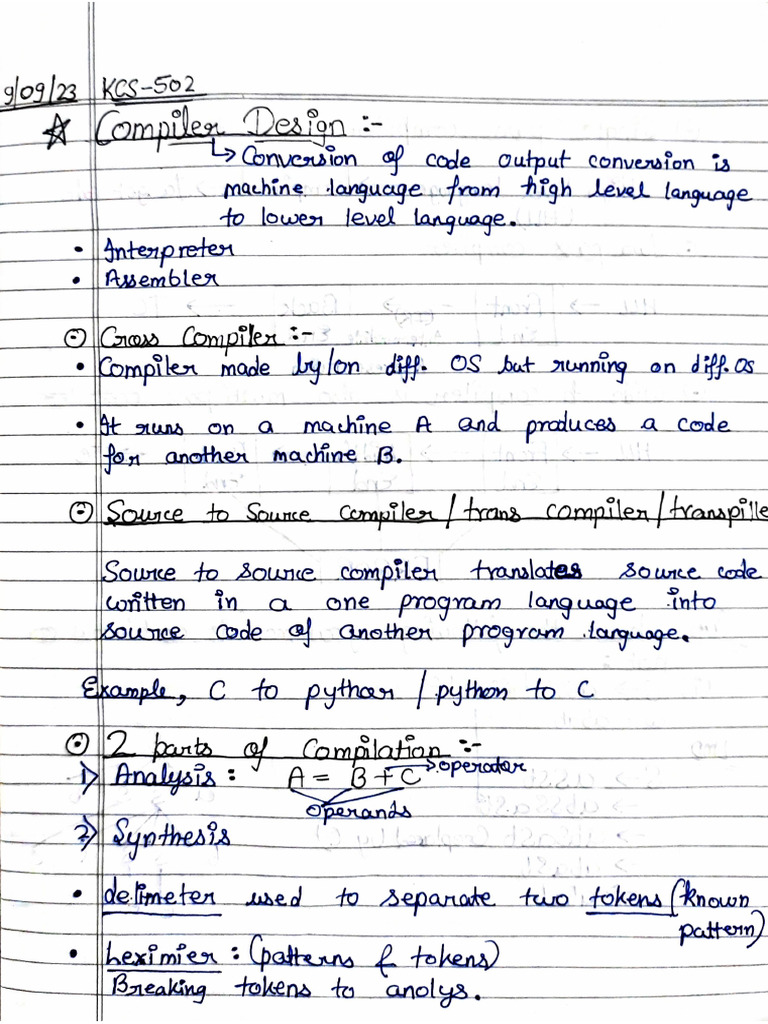 9/09/23 KCS-502
☆ Compiler Design :-
↳ Conversion of code output conversion is
machine language from high level language
to lower level language.
• Interpreter
• Assembler
⊙ Cross Compiler :-
• Compiler made by/on diff. OS but running on diff. OS
• It runs on a machine A and produces a code
for another machine B.
⊙ Source to Source compiler / trans compiler / transpille
Source to source compiler translates source code
written in a one program language into
source code of another program language.
Example, C to python / python to C
⊙ 2 parts of Compilation :-
1) Analysis : A = B + C → operator
operands
2) Synthesis
• delimeter used to separate two tokens (known
pattern)
• Leximier : (patterns & tokens)
Breaking tokens to anolys.